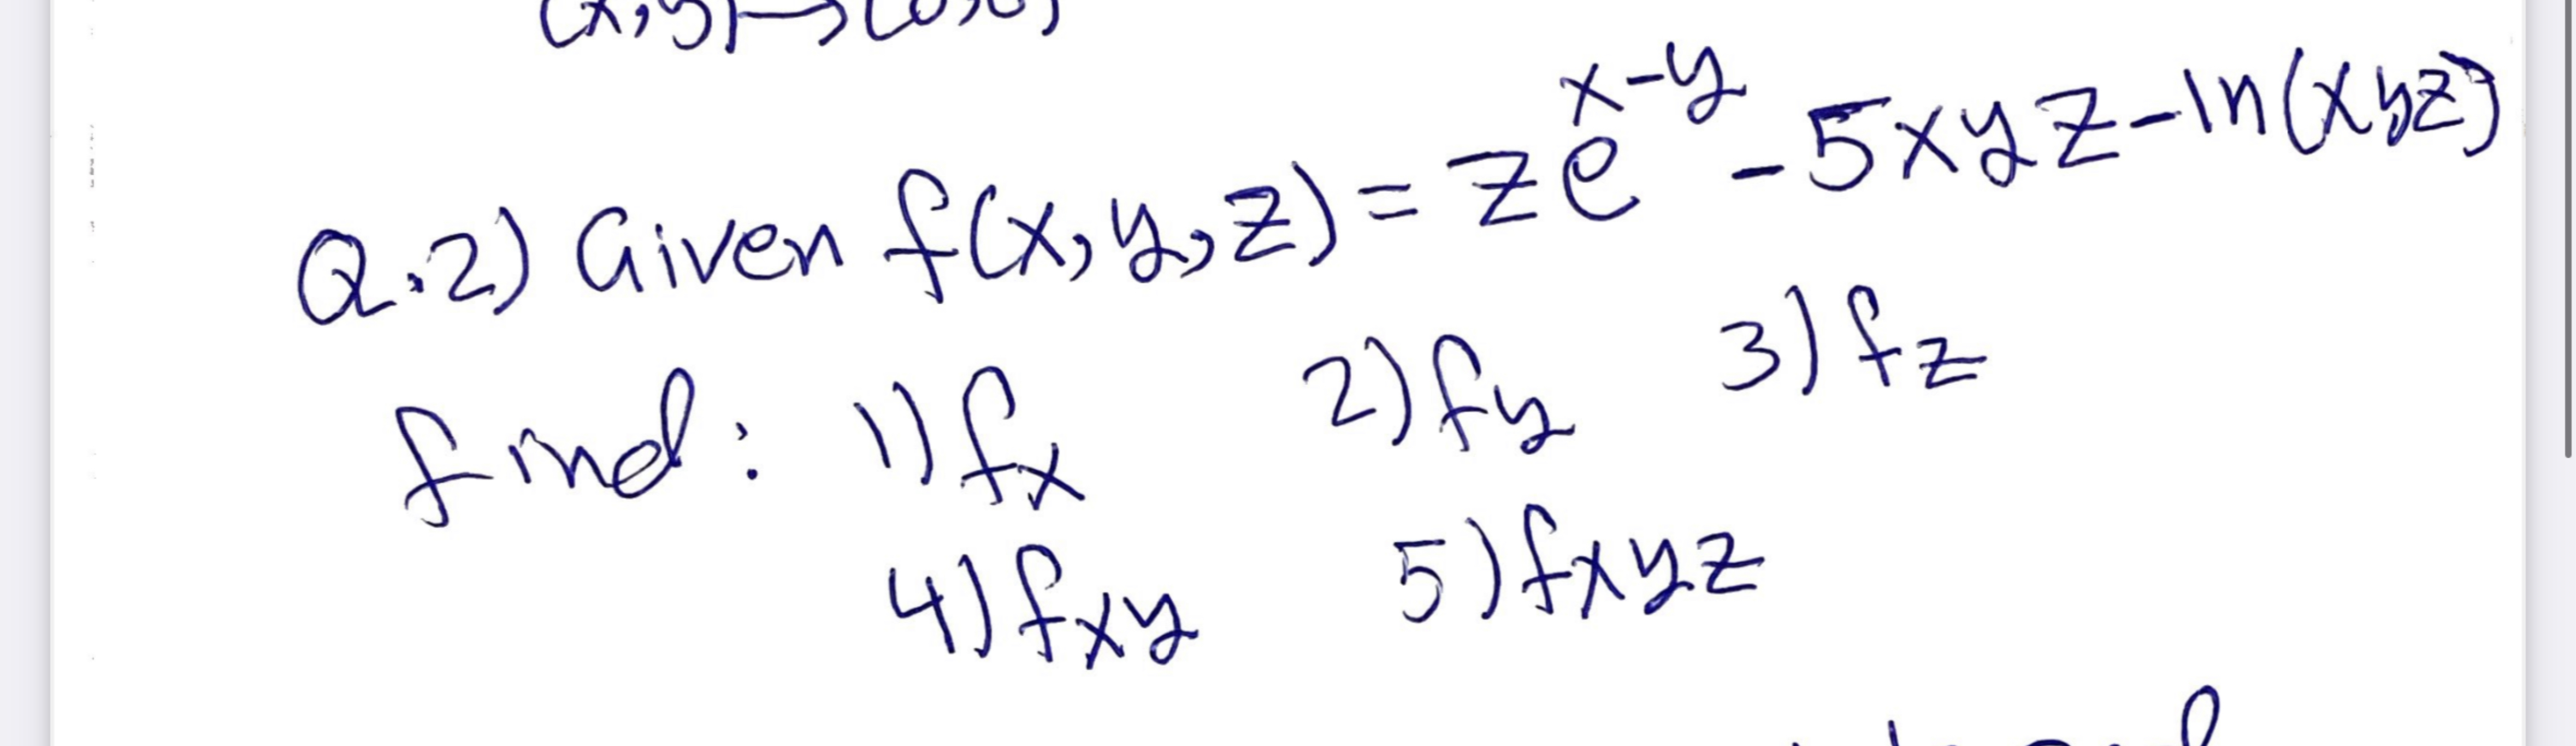 (x,y)→(0,0)
Q.2) Given f(x,y,z) = ze^{x-y} - 5xyz - ln(xyz)
find: 1) fx 2) fy 3) fz
4) fxy 5) fxyz